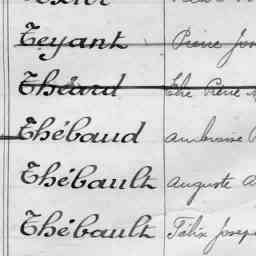 Teyant Pierre
Théard Pierre
Thébaud Ambroise
Thébault Auguste
Thébault Félix Joseph